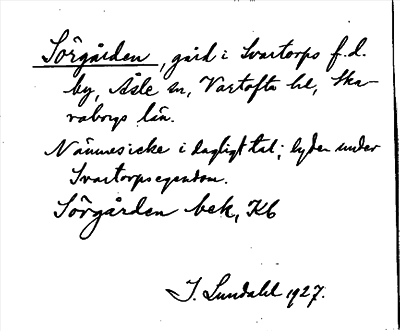 Sörgården, gård i Svartorps f.d.
by, Åsle sn, Vartofta hd, Ska-
raborgs län.
Nämnes icke i dagligt tal; lyder under
Svartorpsegendom.
Sörgården bek, Kb
I. Lundahl 1927.